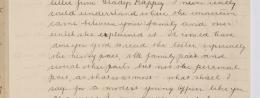 letter from Gladys Happy. I never really
could understand where the connection
came between your family and ours
until she explained it. It would have
done you good to read the letter especially
the part, all family part and
social other parts, but not the personal
part, as that is most what shall I
say, for a modest young officer like you